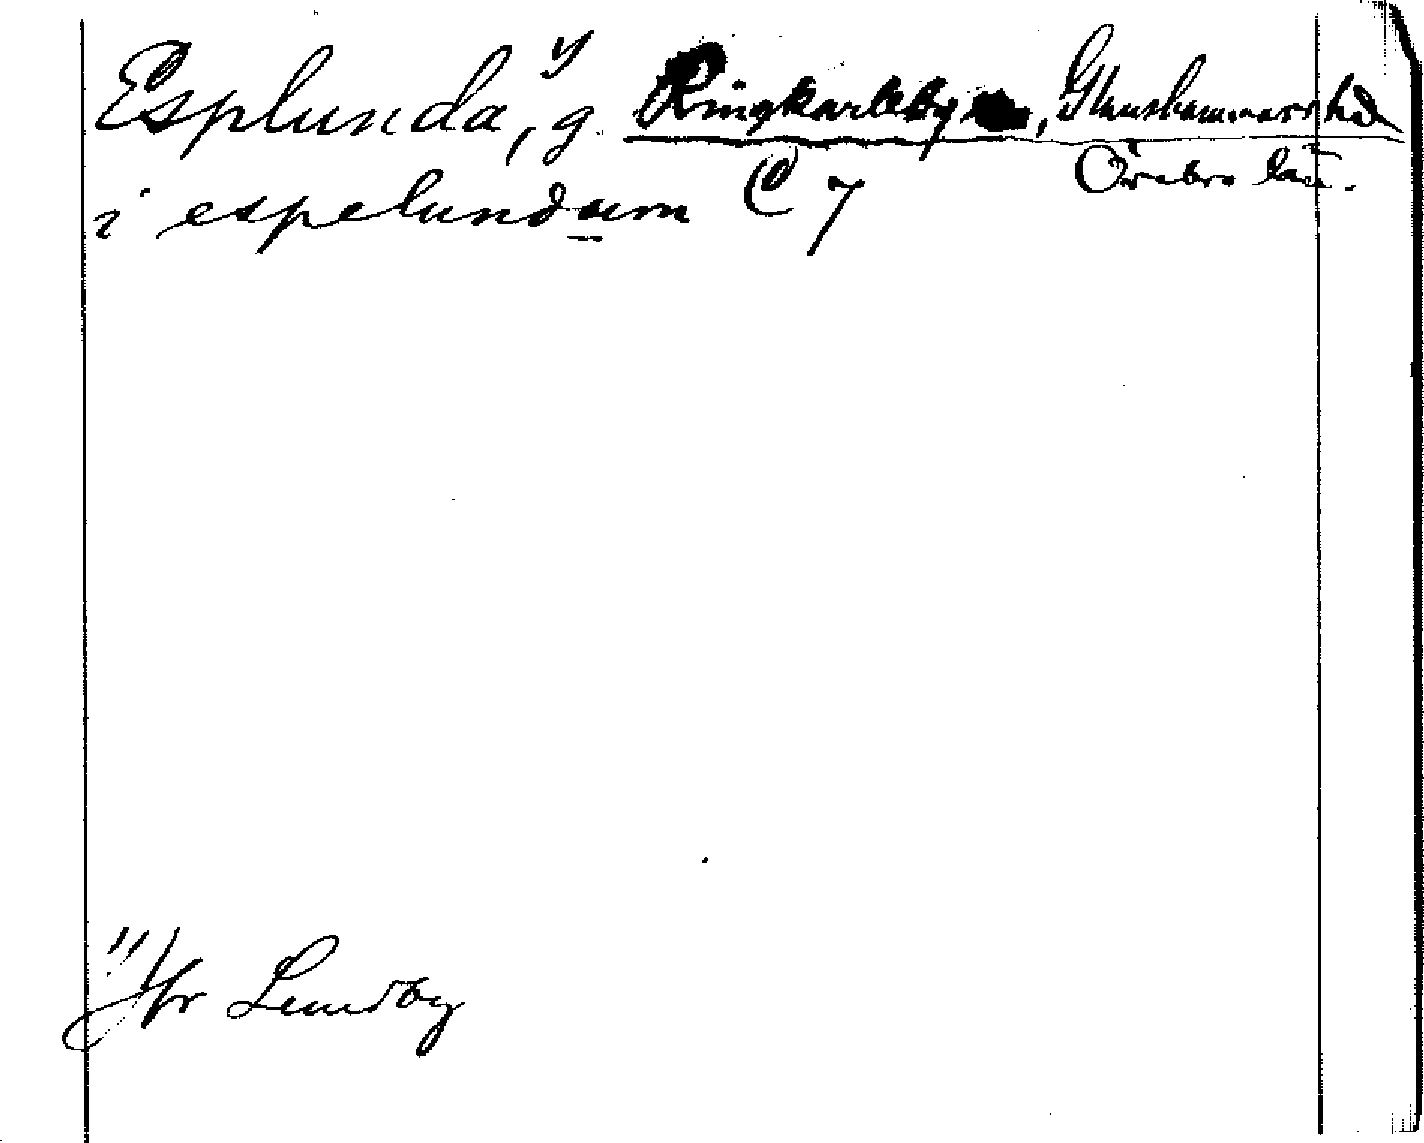 Esplunda, ¹⁾ g. Rinkarleby, Glanshammars hd
Örebro län.
i espelundum C 7
¹⁾ Jfr Lundby